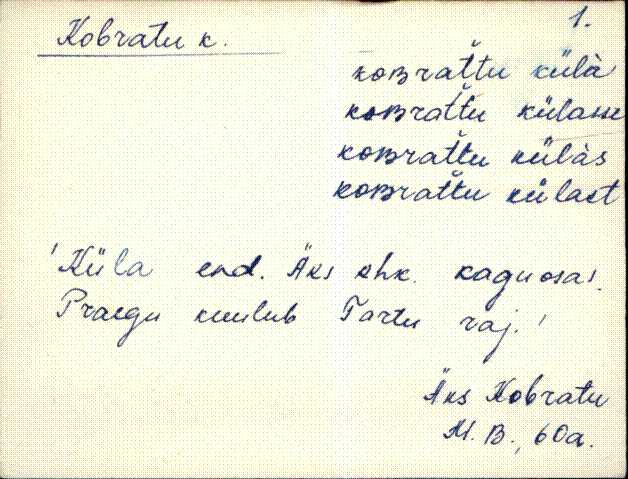 1.
Kobratu k.
koʙrat̆t̆u külà
koʙrat̆t̆u külasse
koʙrat̆t̆u külàs
koʙrat̆t̆u külast
'Küla end. Äks khk. kaguosas.
Praegu kuulub Tartu raj.'
Äks Kobratu
M. B., 60a.